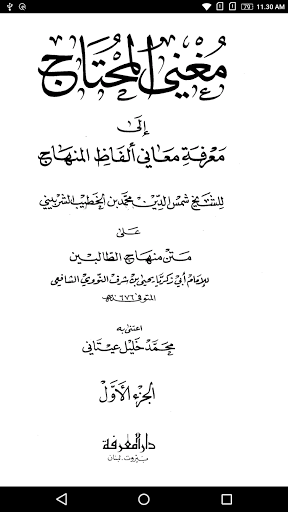 11.30 AM
79
مغني المحتاج
إلى
معرفة معاني ألفاظ المنهاج
للشيخ شمس الدين محمد بن الخطيب الشربيني
على
متن منهاج الطالبين
للإمام أبي زكريا يحيى بن شرف النووي الشافعي
المتوفى ٦٧٦ هـ
اعتنى به
محمد خليل عيتاني
الجزء الأول
دار المعرفة
بيروت. لبنان